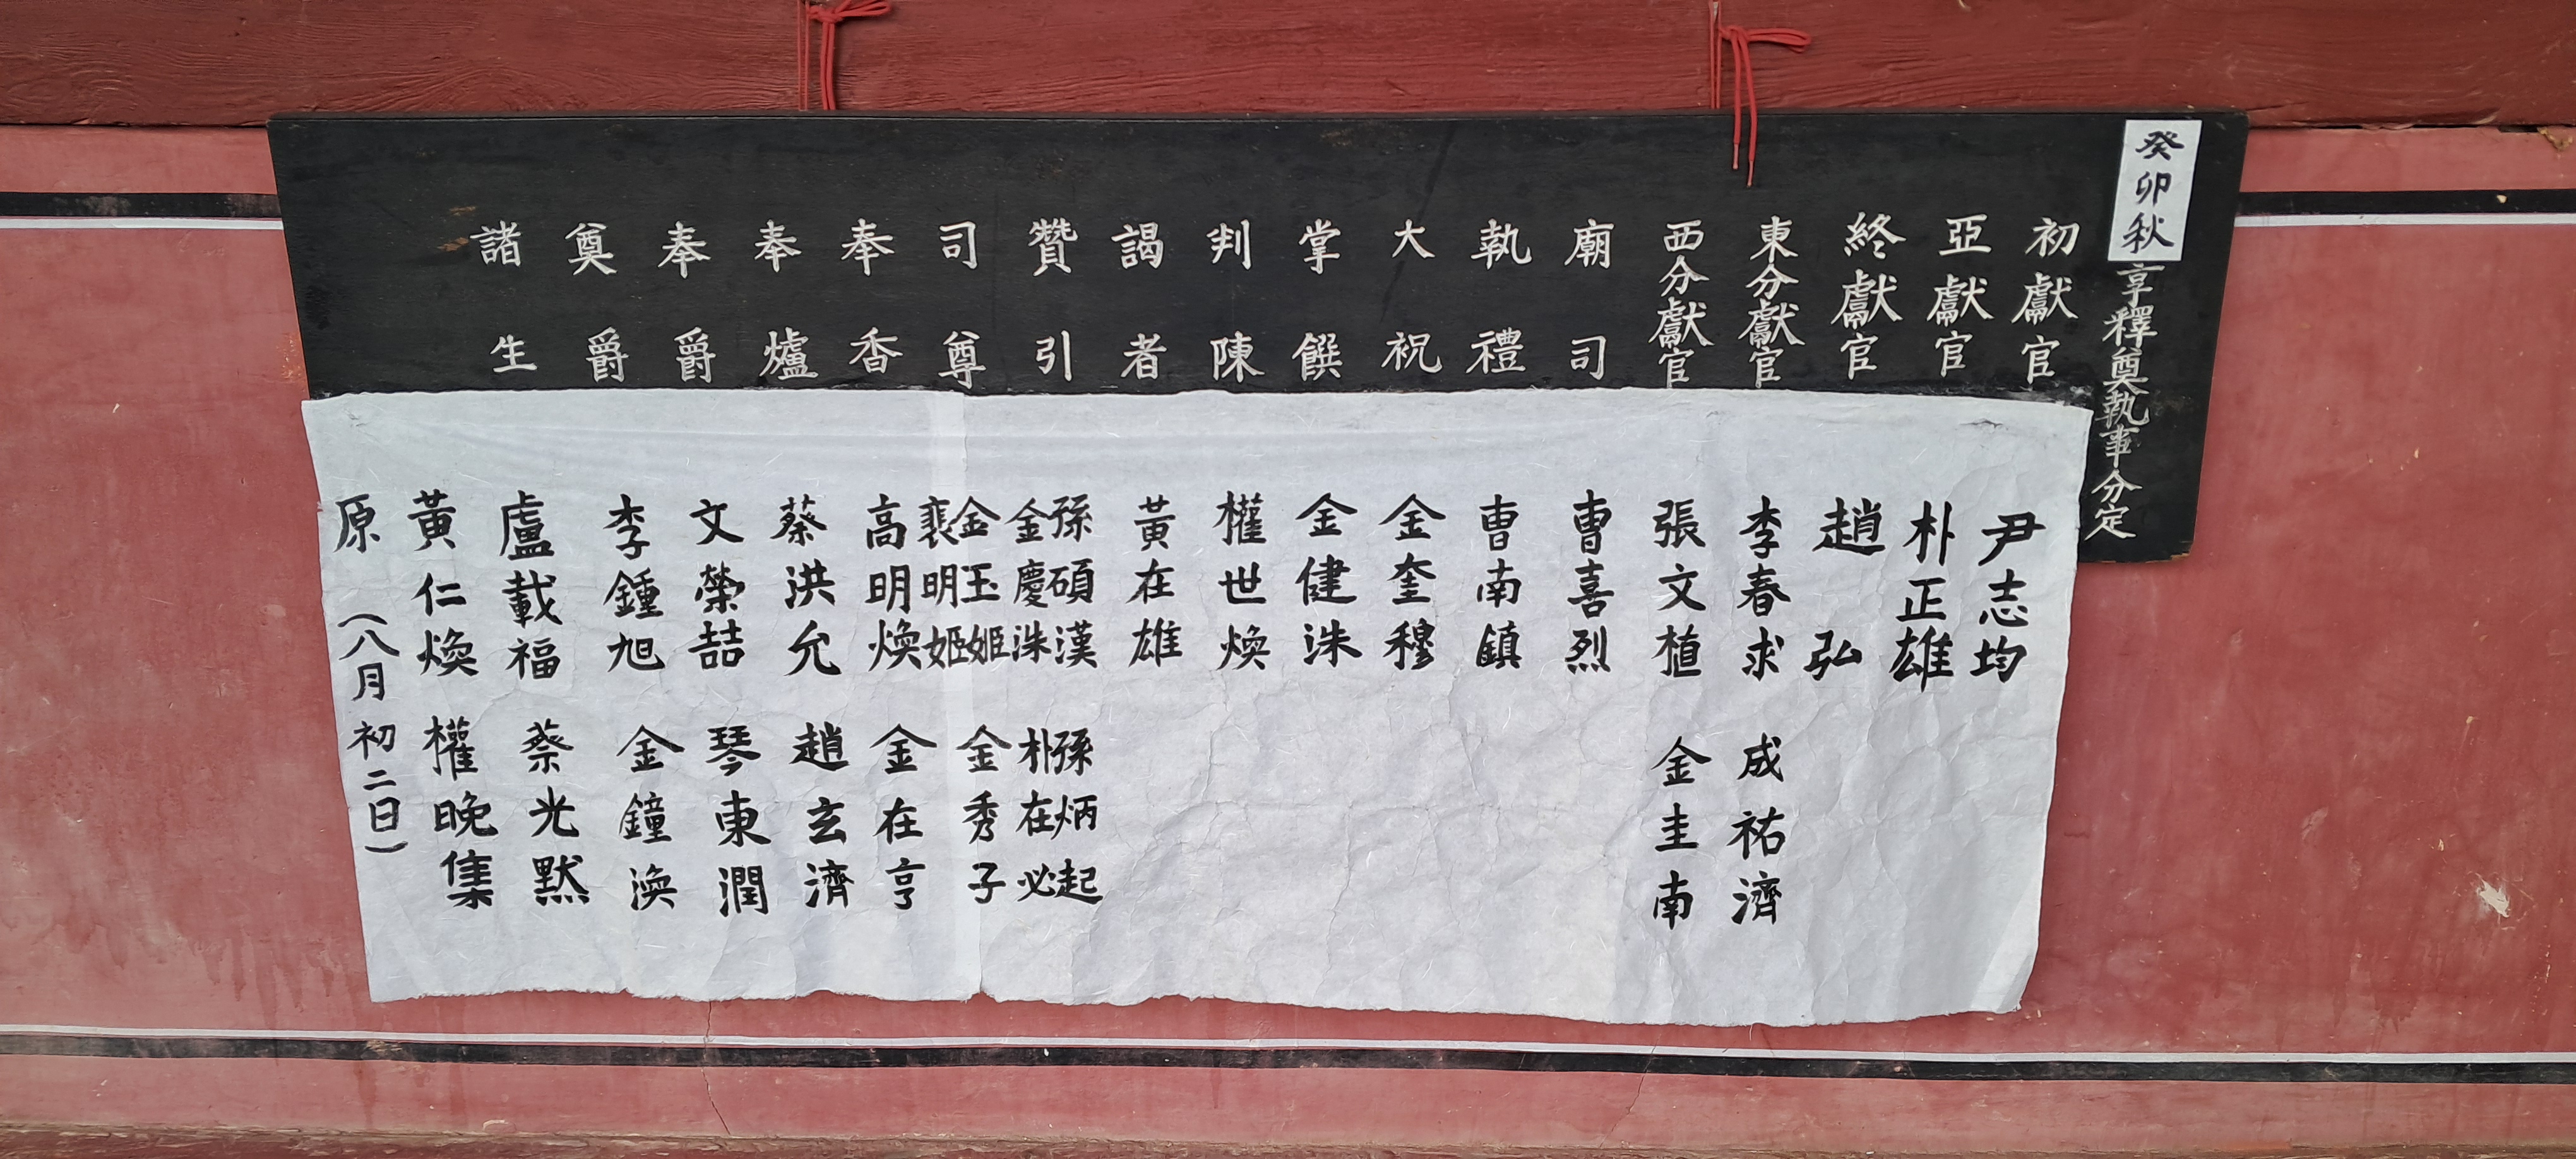 癸卯秋享釋奠執事分定
初獻官
亞獻官
終獻官
東分獻官
西分獻官
廟司
執禮
大祝
掌饌
判陳
謁者
贊引
司尊
奉香
奉爐
奉爵
奠爵
諸生
尹志均
朴正雄
趙弘
李春求 成祐濟
張文植 金圭南
曺喜烈
曺南鎮
金奎穆
金健洙
權世煥
黃在雄
孫碩漢 孫炳起
金慶洙 朴在必
金玉姬 金秀子
裵明姬
高明煥 金在亨
蔡洪允 趙玄濟
文榮喆 琴東潤
李鍾旭 金鐘渙
盧載福 蔡光默
黃仁煥 權晚集
原 (八月初二日)